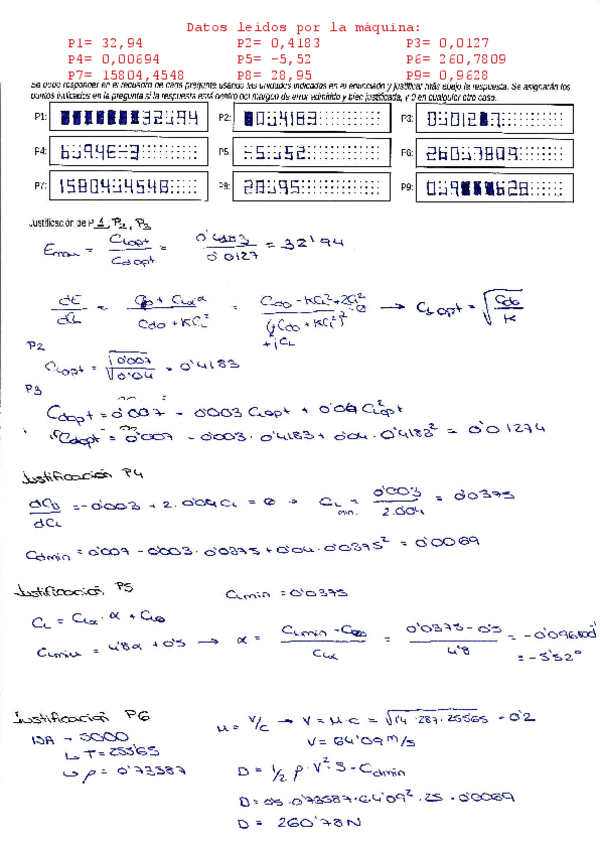 Datos leidos por la máquina:
P1= 32,94 P2= 0,4183 P3= 0,0127
P4= 0,00694 P5= -5,52 P6= 260,7809
P7= 15804,4548 P8= 28,95 P9= 0,9628
Se debe responder en el recuadro de cada pregunta usando las unidades indicadas en el enunciado y justificar más abajo la respuesta. Se asignarán los
puntos indicados en la pregunta si la respuesta está dentro del margen de error admitido y bien justificada, y 0 en cualquier otro caso.
P1: 32,94 P2: 0,4183 P3: 0,0127
P4: 6,94E-3 P5: -5,52 P6: 260,7809
P7: 15804,4548 P8: 28,95 P9: 0,9628
Justificación de P1, P2, P3
Emax = CLopt / CDopt = 0'4183 / 0'0127 = 32'94
dE/dCL = = = 0 → CLopt = √(CD0/K)
P2
CLopt = √0'007 / √0'04 = 0'4183
P3
CDopt = 0'007 - 0'003 CLopt + 0'04 CLopt²
CDopt = 0'007 - 0'003 · 0'4183 + 0'04 · 0'4183² = 0'01274
Justificación P4
dCD/dCL = -0'003 + 2·0'04CL = 0 → CLmin. = 0'003 / 2·0'04 = 0'0375
CDmin = 0'007 - 0'003 · 0'0375 + 0'04 · 0'0375² = 0'0069
Justificación P5 CLmin = 0'0375
CL = CLα · α + CL0
CLmin = 4'8α + 0'5 → α = (CLmin - CL0) / CLα = (0'0375 - 0'5) / 4'8 =
= -5'52°
Justificación P6 M = V/C → V = M·C = √1'4 · 287 · 255'65 · 0'2
ISA → 5000 V = 64'09 m/s
↳ T = 255'65
↳ ρ = 0'73587 D = 1/2 ρ · V² · S · CDmin
D = 0'5 · 0'73587 · 64'09² · 25 · 0'0069
D = 260'78 N